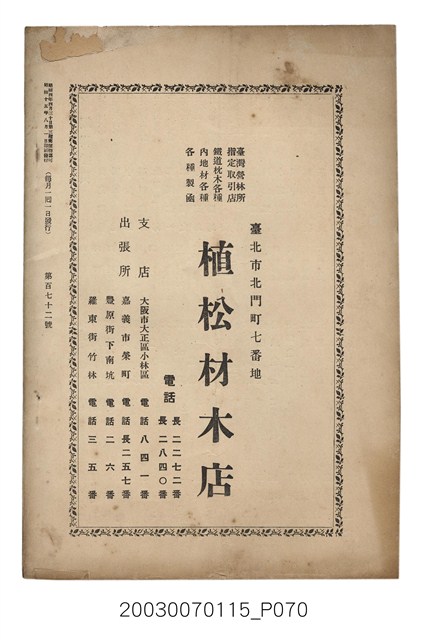 臺灣營林所
指定取引店
鐵道枕木各種
內地材各種
各種製函
臺北市北門町七番地
植松材木店
電話
長二二七二番
長二八四〇番
支店
大阪市大正區小林區
電話八四一番
出張所
嘉義市榮町
電話長二五七番
豐原街下南坑
電話二六番
羅東街竹林
電話三五番
(每月一囘一日發行)
第百七十二號
20030070115_P070